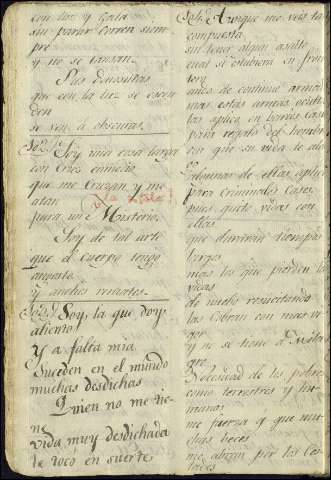 con luz y Gala
sin parar corren siem
pre
y no se cansan.
Sus
que con la luz se escon
den
se ven a obscuras.
Soy una cosa larga
con Cruz enmedio
que me Cruzan, y me
atan
para un Misterio.
Soy de tal arte
que el cuerpo tengo
angosto
y anchos remates.
Soy, la que doy,
aliento,
Y a falta mia
Suceden en el mundo
muchas desdichas
Quien no me tie-
ne
vida muy desdichada
le tocó en suerte
Aunque me veis tan
compuesta
sin tener algun asalto
cual si estubiera en fron
tera
antes de continuo
mas estas armas
las aplica en barios casos
para regalo del hombre
con que su vida
Algunas de ellas aplica
para Criminales Casos,
pues quita vidas con
ellas
que durarian tiempos
largos
mas los que pierden las
vidas
de nuebo resucitando
las Cobran con mas vi
gor
y no se tiene a
gro
Necesidad de los pobres
como terrestres y hu
manos
me fuerza a que mu
chas beces
me abran por los Cos
tados